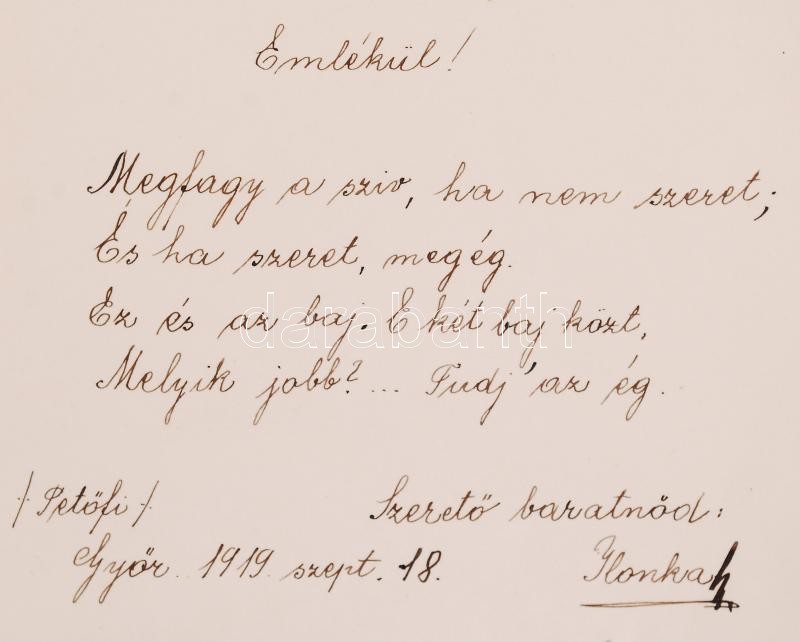 Emlékül!
Megfagy a sziv, ha nem szeret;
És ha szeret, megég.
Ez és az baj. E két baj közt,
darabanth
Melyik jobb?... Tudj' az ég.
/Petőfi/
Szerető baratnőd:
Győr. 1919. szept. 18.
Ilonka